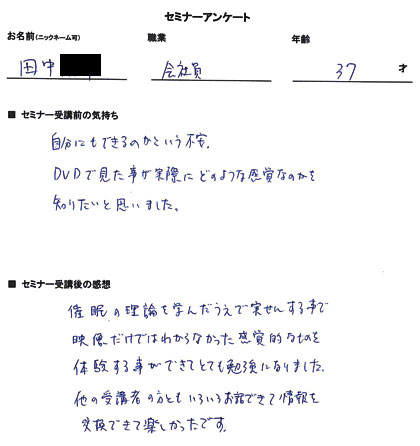 セミナーアンケート
お名前(ニックネーム可) 職業 年齢
田中 会社員 37 才
■ セミナー受講前の気持ち
自分にもできるのかという不安.
DVDで見た事が実際にどのような感覚なのかを
知りたいと思いました。
■ セミナー受講後の感想
催眠の理論を学んだうえで実せんする事で
映像だけではわからなかった感覚的なものを
体験する事ができてとても勉強になりました.
他の受講者の方ともいろいろお話できて情報を
交換できて楽しかったです.